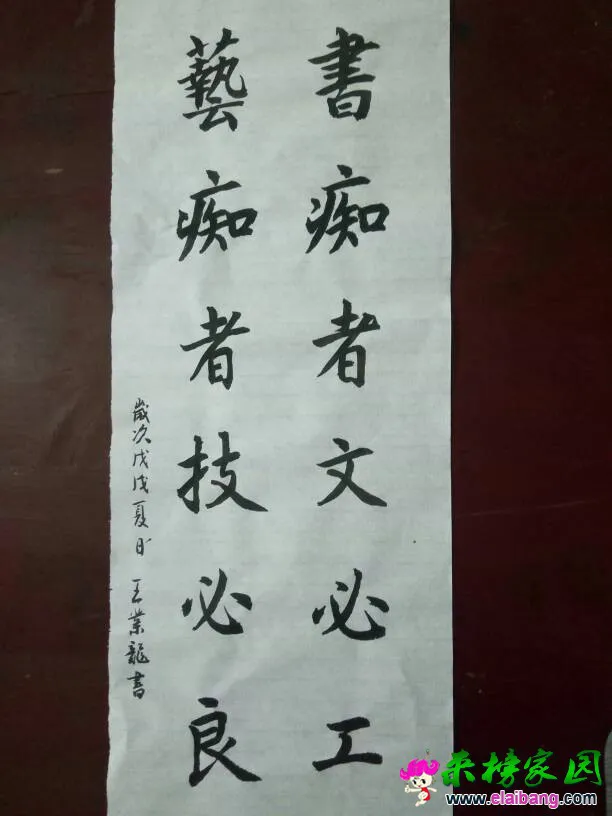 書痴者文必工
藝痴者技必良
歲次戊戌夏日 王業龍書
來榜家园
www.elaibang.com